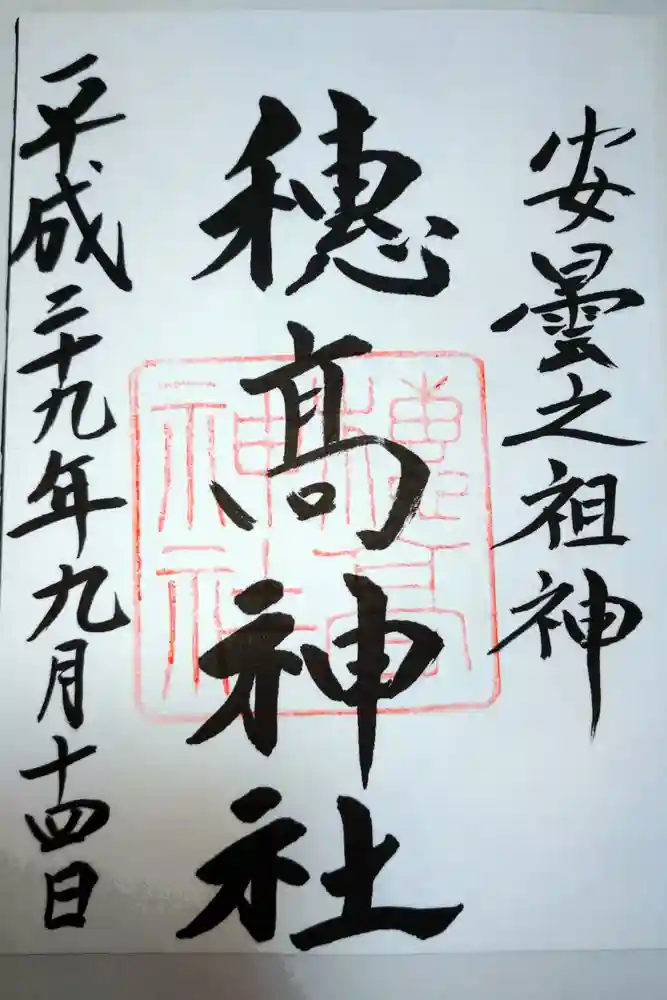 安曇之祖神
穂髙神社
穂髙
神社
平成二十九年九月十四日